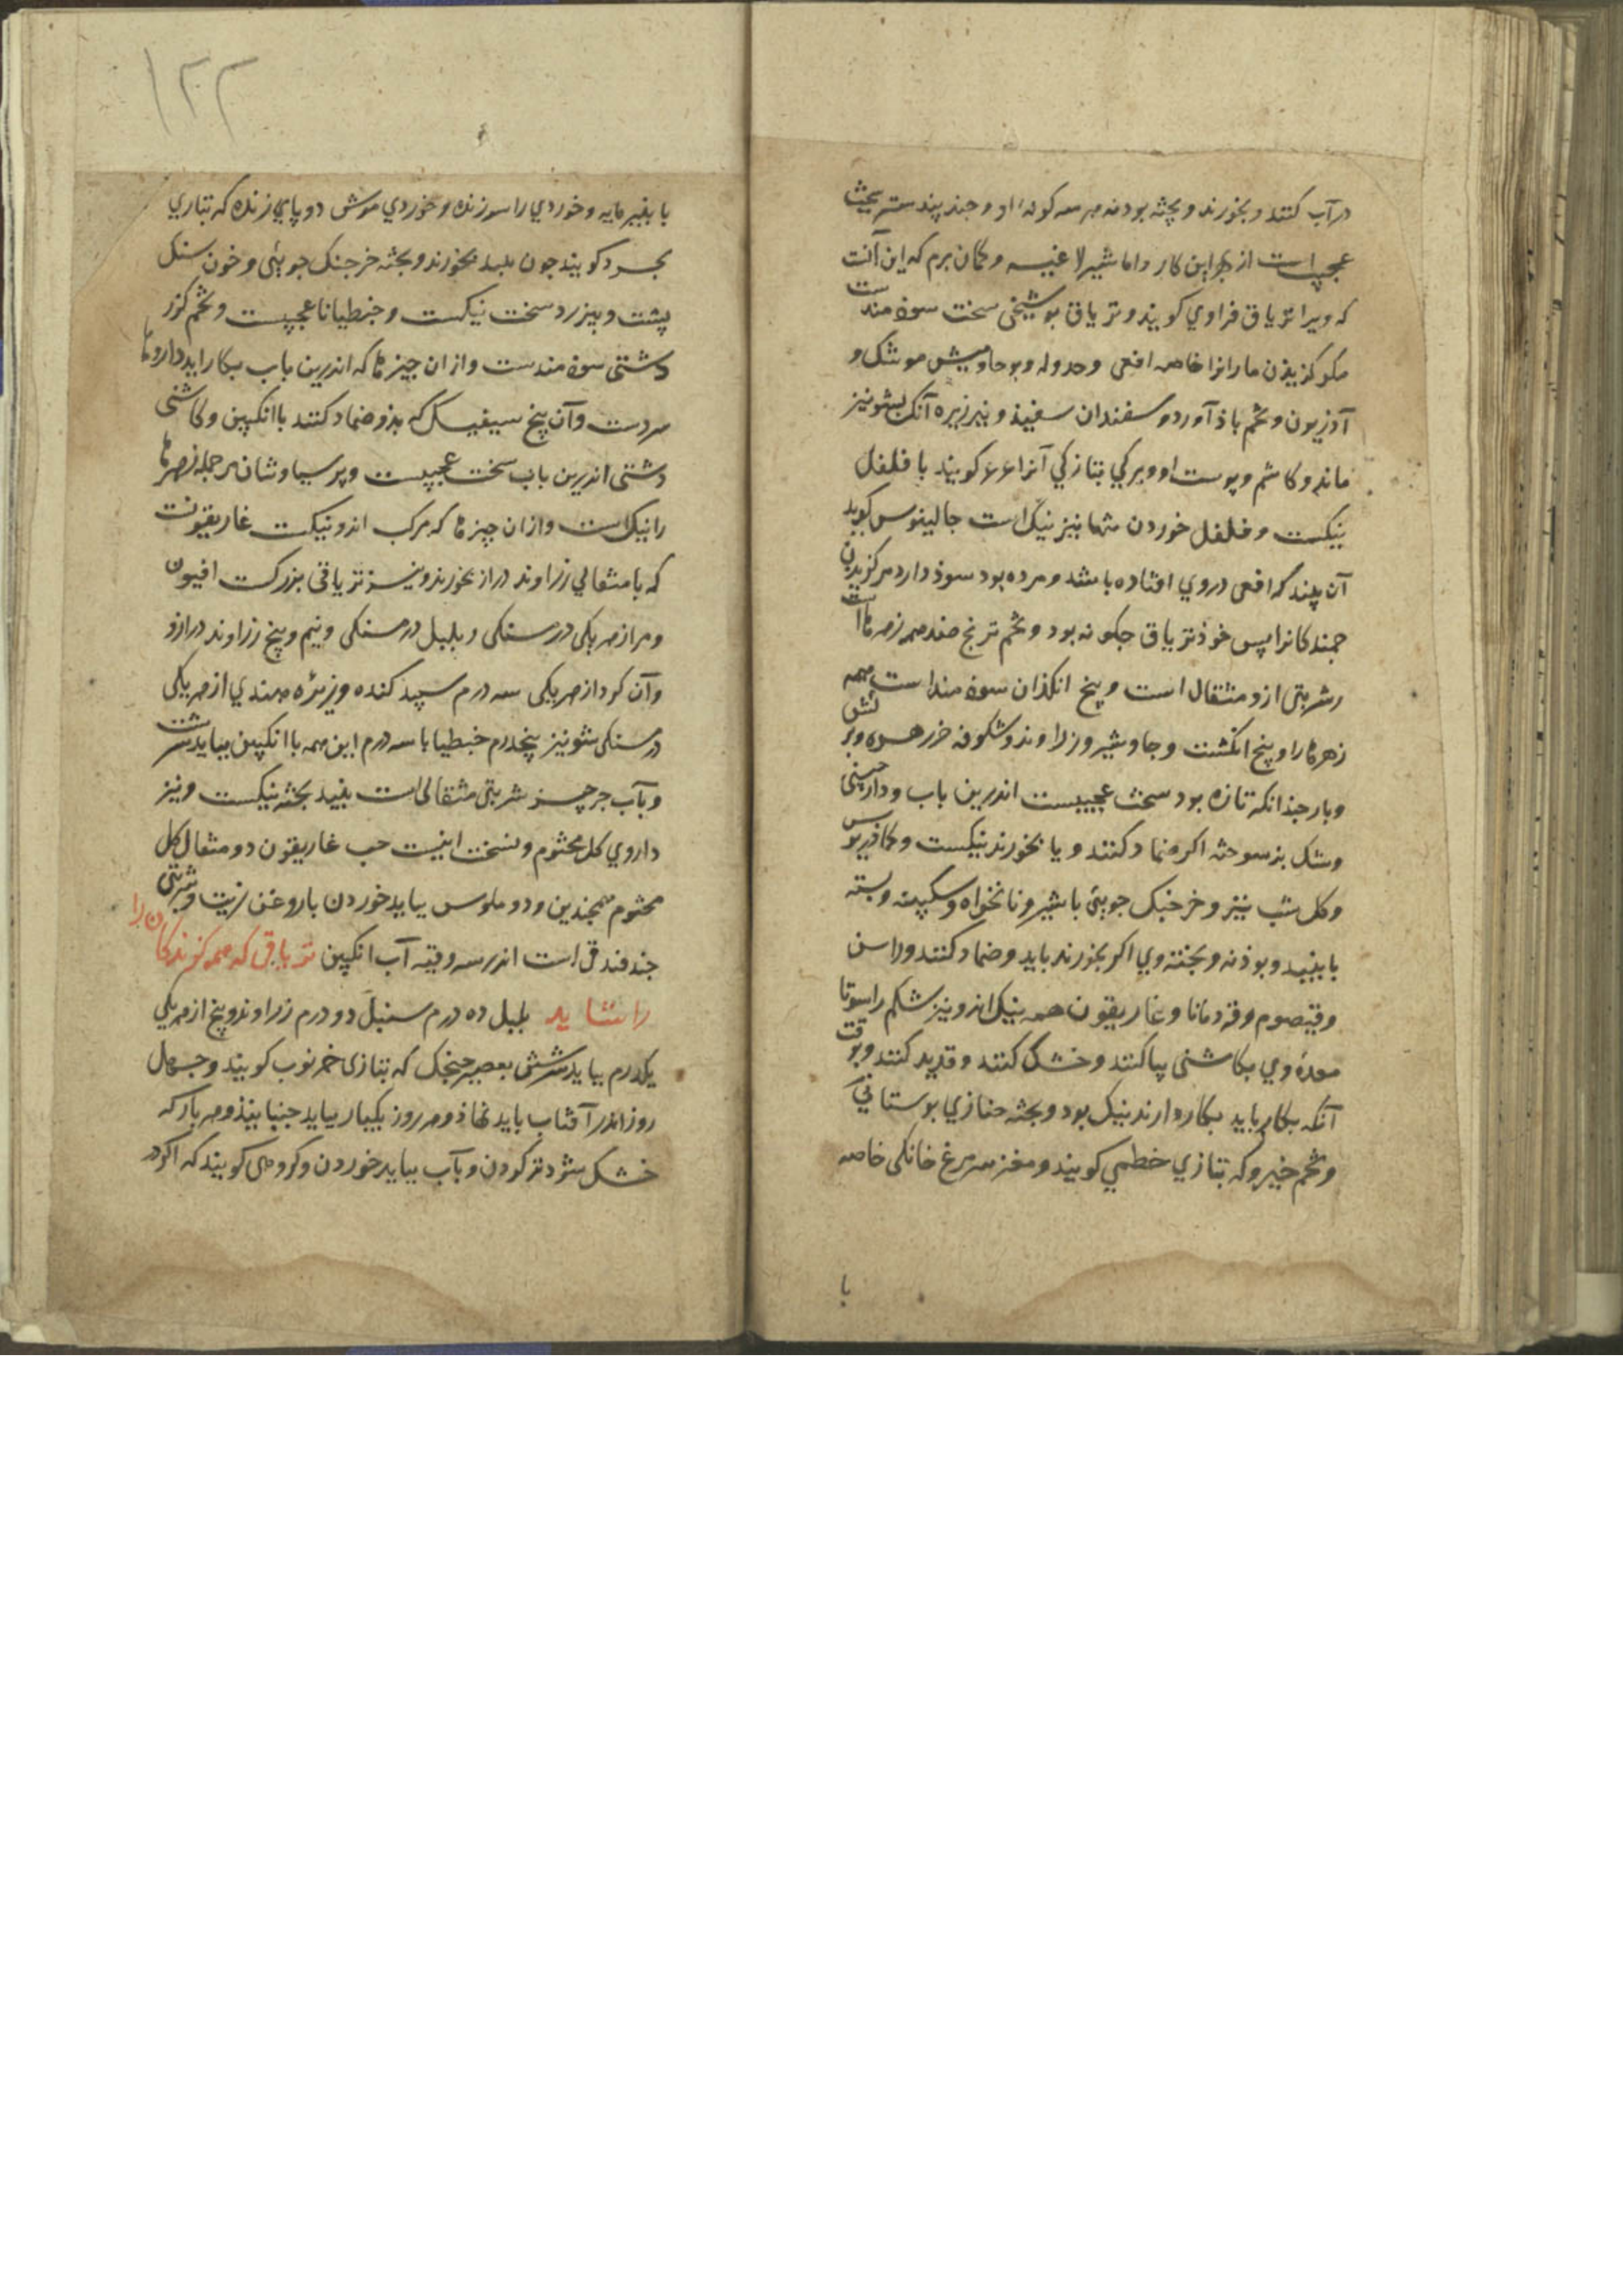 در آب کنند و بخورند و پخته بودنه هر سه کونه او و جند بیدستر سخت
عجیب است از بهر این کار و اما شیر لاغیه و کمان برم که این آنت
که ویرا تریاق فراوی کویند و تریاق بوشنجی سخت سوذمندست
مکر کزیدن مارانرا خاصه افعی و موشک و
آذریون و تخم باذآورد و سفندان سفیذ و نیز زیره آنک بشونیز
ماند و کاشم و پوست او و برکی بتازکی آنرا عرعر کویند با فلفل
نیکست و فلفل خوردن تنها نیز نیک است جالینوس کوید
آن پیند که افعی در وی افتاده باشد و مرده بود سوذ دارد مر کزیدن
جمندکانرا پس خوذ تریاق جکونه بود و تخم ترنج ضد همه زهرهاست
و شربتی ازو مثقال است و بیخ انکذان سوذمند است همه
زهرها را و بیخ انکشت و جاوشیر و زراوند و شکوفه خرزهره و برکش
و بار جذانکه تازه بود سخت عجیبست اندرین باب و دارجینی
و شک بزسوخته اکر ضماد کنند و یا بخورند نیکست و کمافیدریوس
و کل شب نیز و خرجنک جویی با شیر و نانخواه و سکبینه و بسته
با نبید و بوذنه و پخته وی اکر بخورند باید و ضماد کنند و راسن
و قیصوم و قردمانا و غاریقون همه نیک اند و نیز شکم راسو تا
معدهٔ وی بکاشنی پیا کنند و خشک کنند و قدید کنند و بوقت
آنکه بکار باید بکار دارند نیک بود و پخته خبازی بوستانی
و تخم خیرو که بتازی خطمی کویند و مغز سر مرغ خانکی خاصه
با
۱۳۳
با پنیر مایه و خوردی راسو زنده و خوردی موش دو پای زنده که بتازی
بجرد کویند جون بخورند و پخته خرجنک جویی و خون سنک
پشت و نیز رد سخت نیکست و جنطیانا عجیبست و تخم کزر
دشتی سوذمندست و از ان جیزها که اندرین باب بکار اید داروها
سردست و آن بیخ سیفیسک که بذو ضماد کنند با انکبین و کاشنی
دشتی اندرین باب سخت عجیبست و پرسیاوشان مر جمله زهرها
را نیک است و از ان چیزها که مرکب اند و نیکست غاریقونت
که با مثقالی زراوند دراز بخورند و نیز تریاقی بزرکست افیون
و مر از هر یکی درمسنکی و پلپل درمسنکی و نیم و بیخ زراوند دراز و
و آن کرد از هر یکی سه درم سپید کنده و زیره هندی از هر یکی
درمسنکی شونیز پنجدرم جنطیانا سه درم این همه با انکبین بباید سرشت
و بآب جرجیر شربتی مثقالی است بنبید پخته نیکست و نیز
داروی کل مختوم و نسخت اینست حب غاریقون دو مثقال کل
مختوم همجندین و دو ملوس بباید خوردن با روغن زیت و شربتی
جند فندقی است اندر سه وقیه آب انکبین تریاقی که همه کزندکان را
را شاید پلپل ده درم سنبل دو درم زراوند و بیخ از هر یکی
یکدرم بباید سرشتن بعصیر جنجک که بتازی خرنوب کویند و جهل
روز اندر آفتاب باید نهاذ و هر روز یکبار بباید جنبانیذ و هر بار که
خشک شود تر کردن و بآب بباید خوردن و کروهی کویند که اکر در